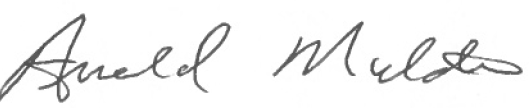 Arnold Mulder